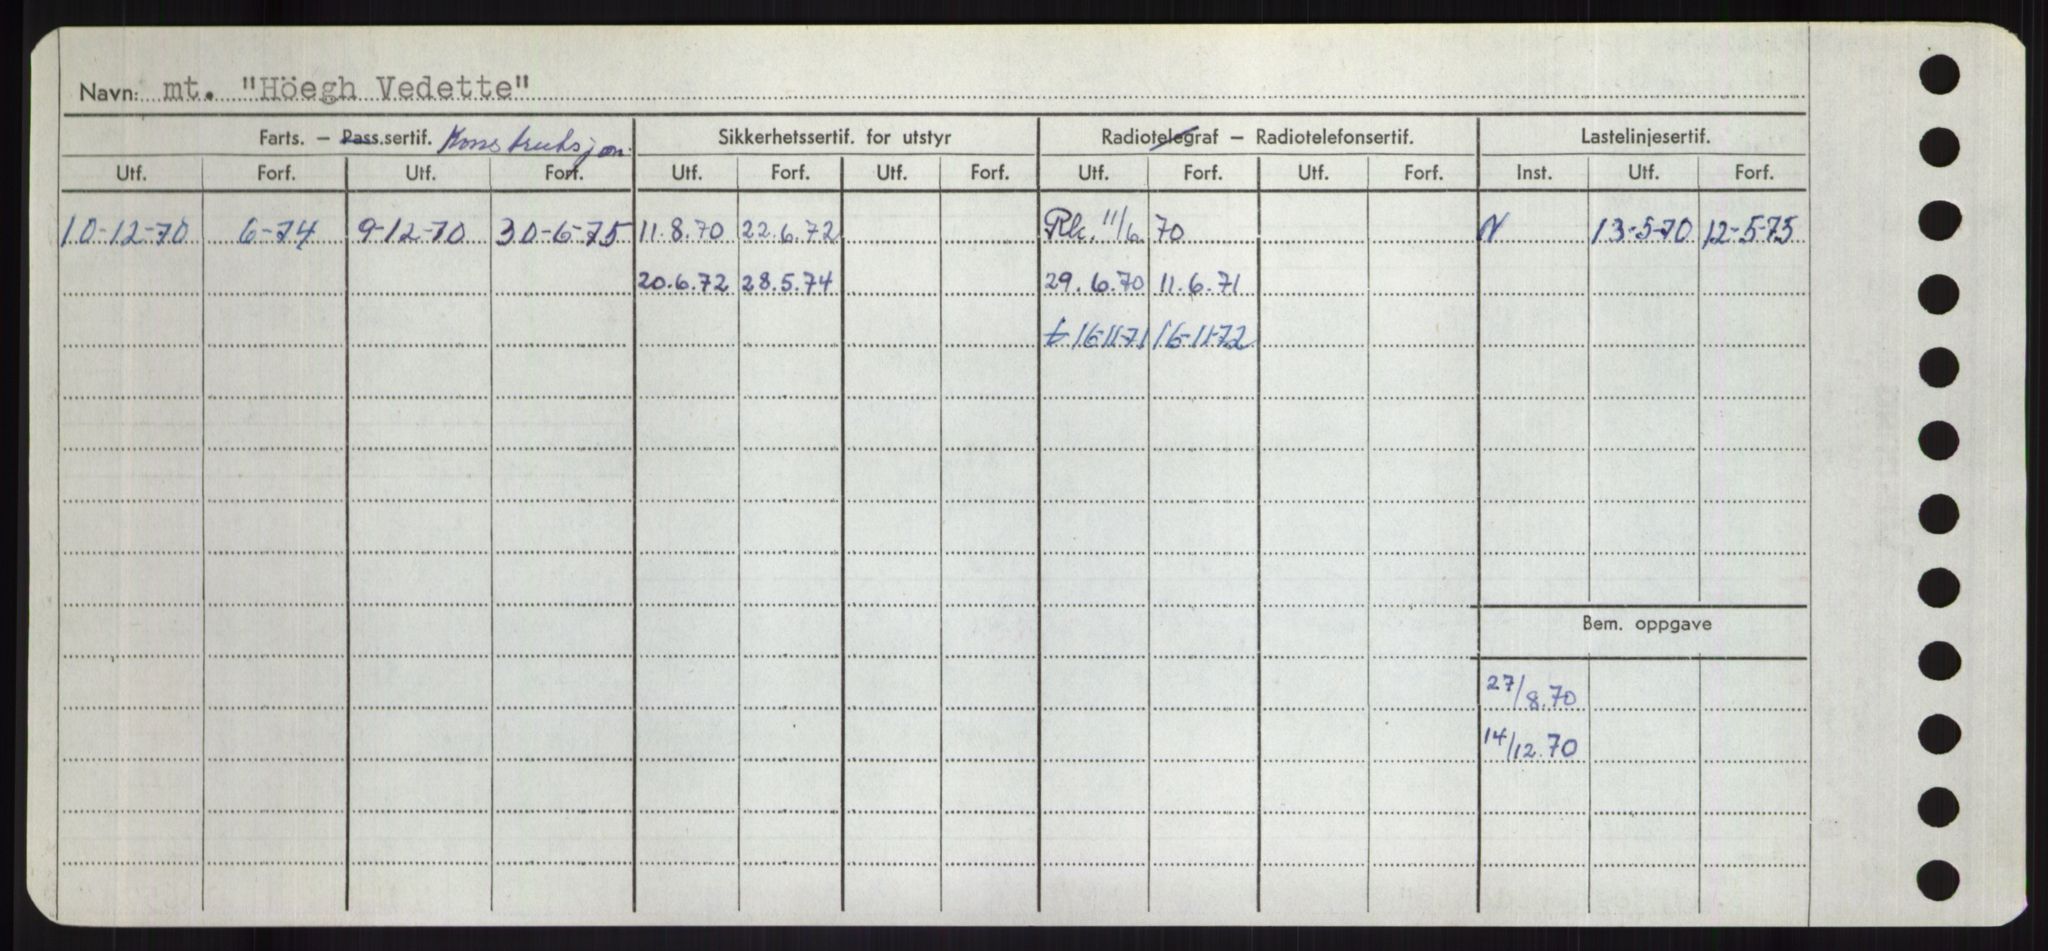 Navn: mt. "Höegh Vedette"
Farts. – Pass.sertif. Konstruksjon. Sikkerhetssertif. for utstyr Radiotelegraf – Radiotelefonsertif. Lastelinjesertif.
Utf. Forf. Utf. Forf. Utf. Forf. Utf. Forf. Utf. Forf. Utf. Forf. Inst. Utf. Forf.
10-12-70 6-74 9-12-70 30-6-75 11.8.70 22.6.72 Rk. 11/6 70 N 13-5-70 12-5-75
20.6.72 28.5.74 29.6.70 11.6.71
t 16-11-71 16-11-72
Bem. oppgave
27/8.70
14/12.70